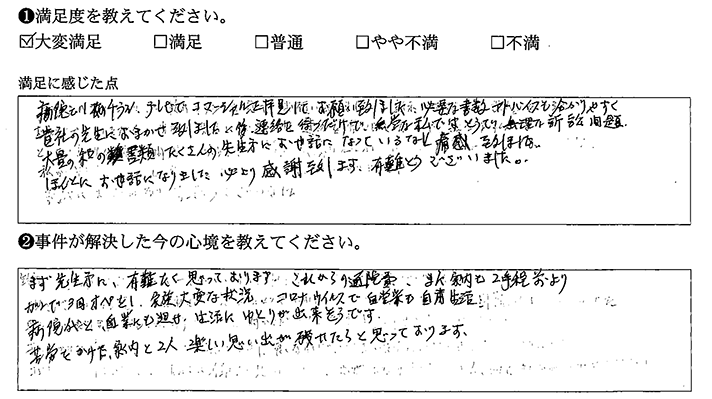 ❶満足度を教えてください。
☑大変満足 □満足 □普通 □やや不満 □不満
満足に感じた点
テレビで コマーシャルを拝見して、お願い致しました、必要な書類 アドバイスも分かりやすく
貴社の先生におまかせ致しました 連絡を 無学な私で 無理な訴訟問題
大量の 書類 たくさんの先生方に お世話になっているなと 痛感致しました。
ほんとにお世話になりました 心より感謝致します。有難うございました。
❷事件が解決した今の心境を教えてください。
まず先生方に、有難たく思っております。これからの通院費、また家内も2年程前より
がんで3回オペをし、大変な状況 コロナウイルスで自営業も自粛生活
病院代と、自営にも 生活にゆとりが出来そうです。
苦労をかけた家内と2人 楽しい思い出が 残せたらと思っております。